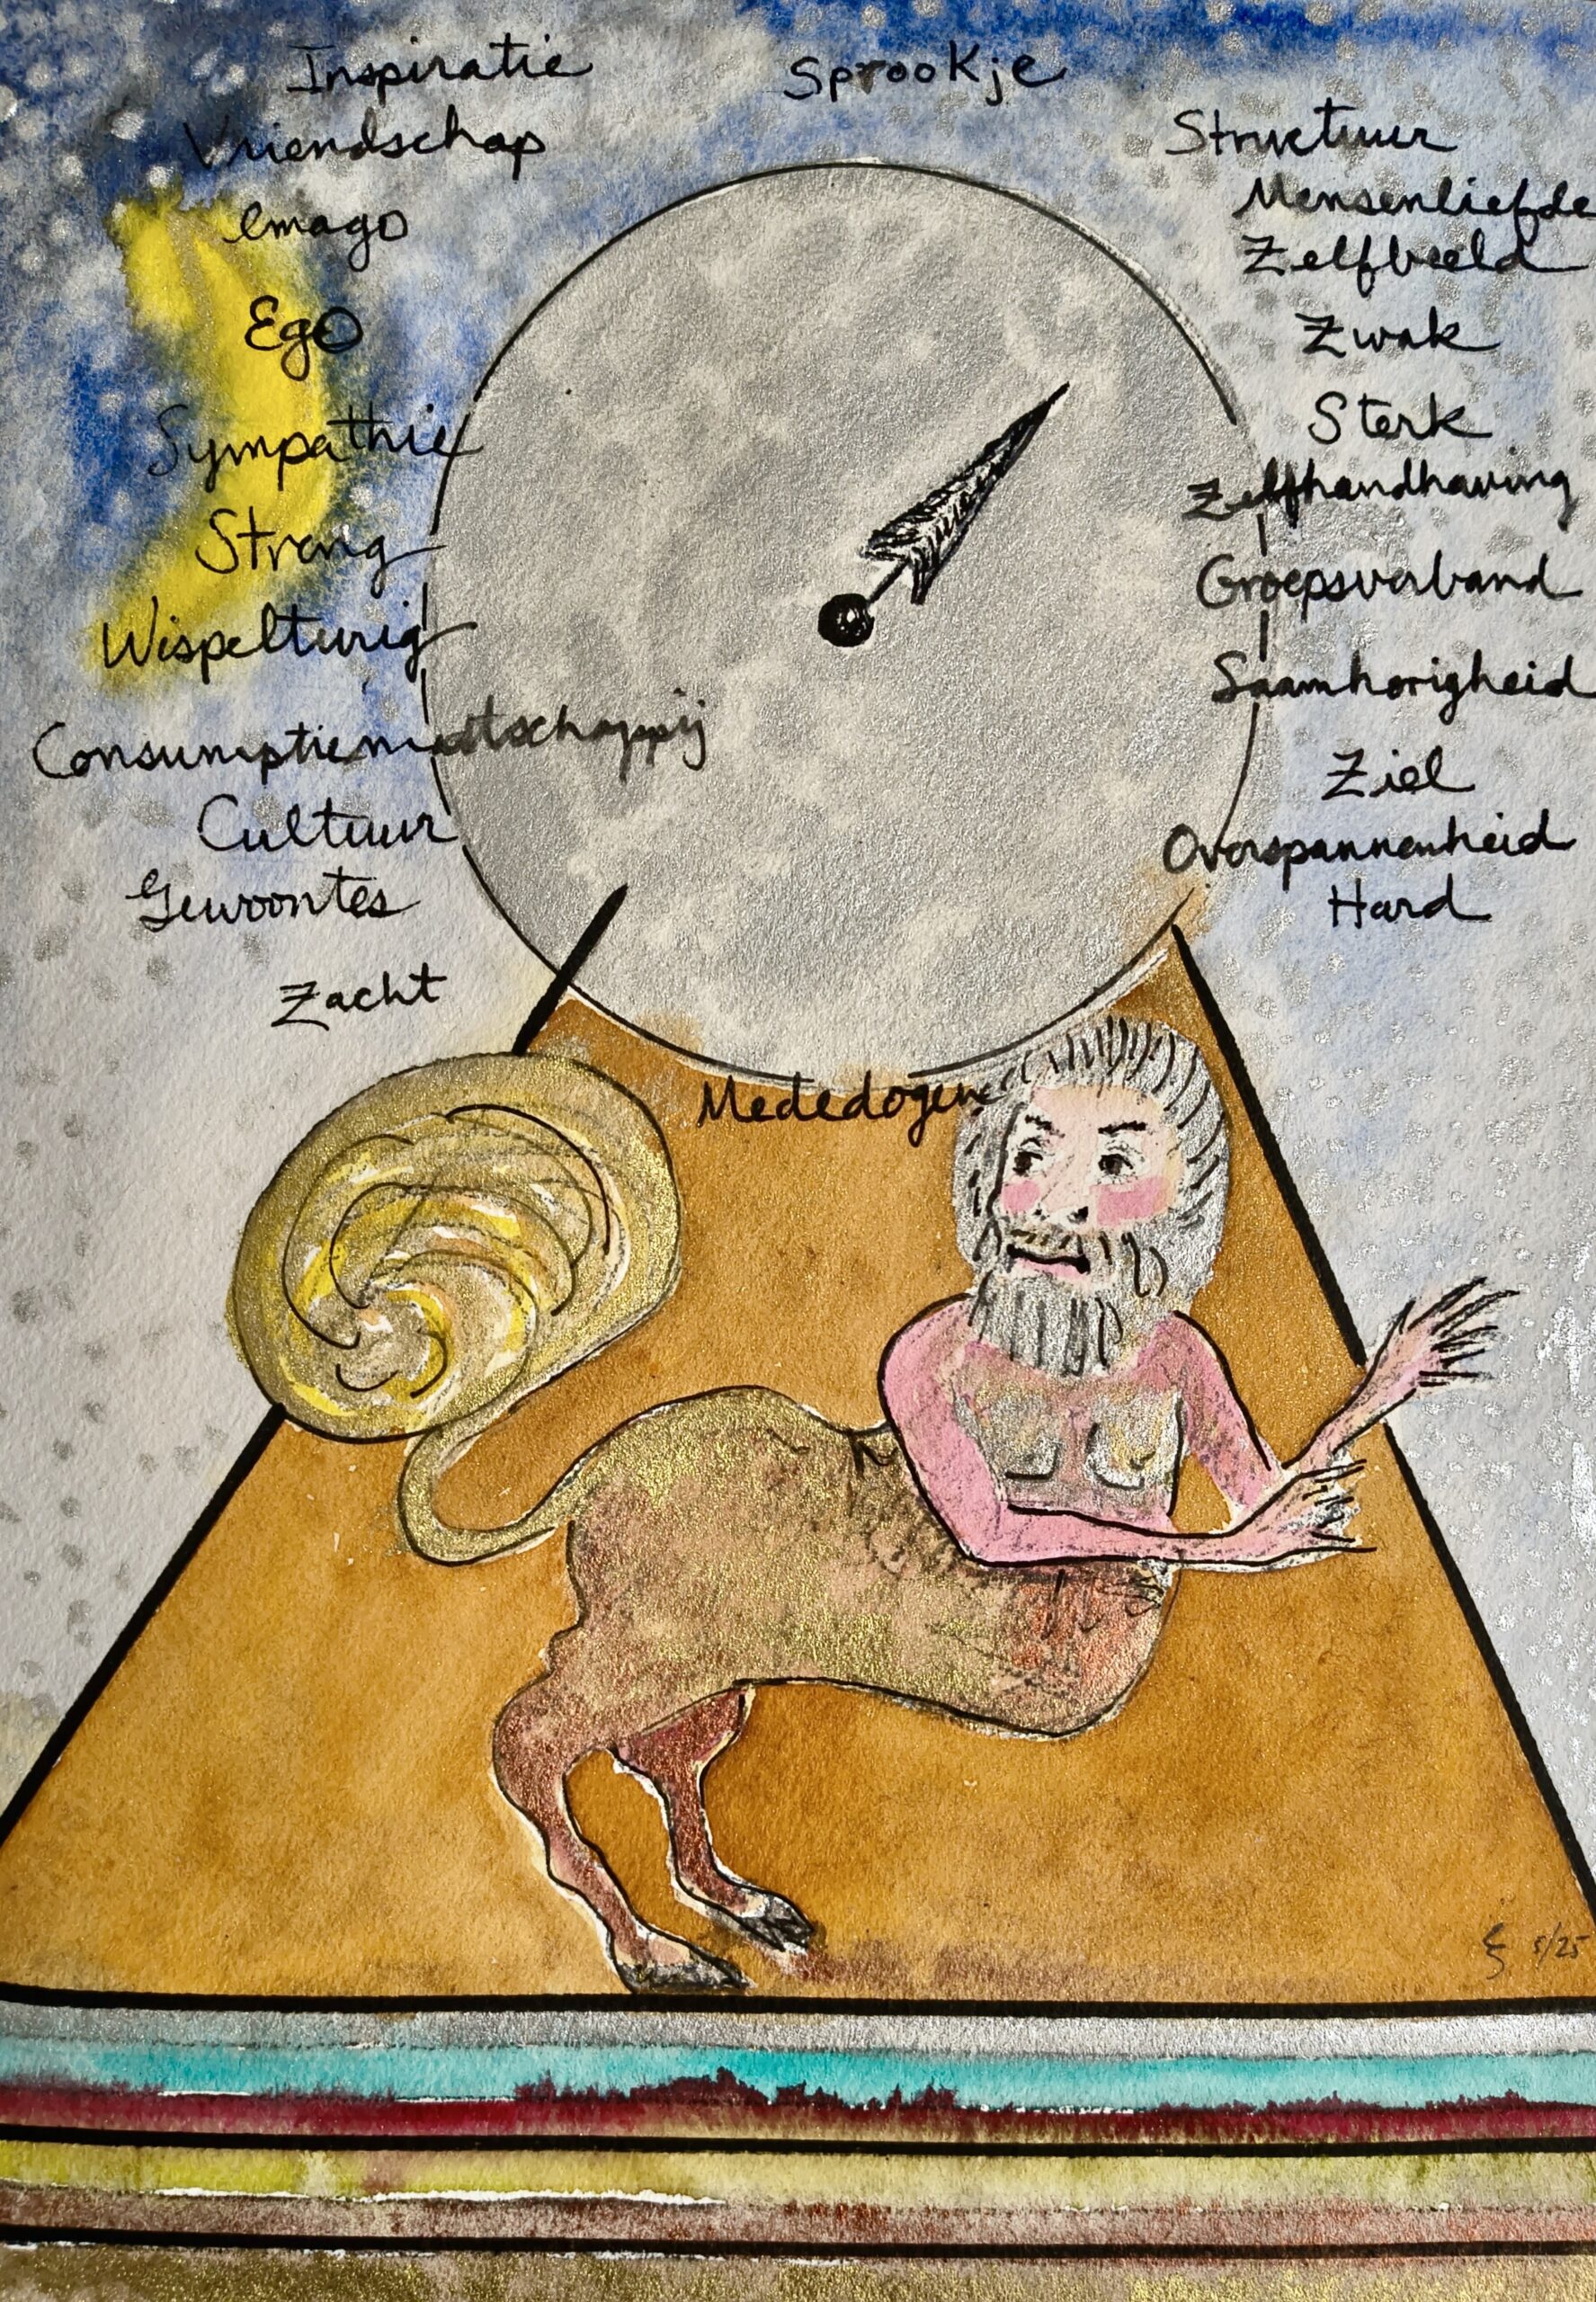 Inspiratie
Sprookje
Vriendschap
Structuur
Imago
Mensenliefde
Zelfbeeld
Ego
Zwak
Sympathie
Sterk
Zelfhandhaving
Streng
Groepsverband
Wispelturig
Saamhorigheid
Consumptiemaatschappij
Ziel
Cultuur
Overspannenheid
Gewoontes
Hard
Zacht
Mededogen
5/25